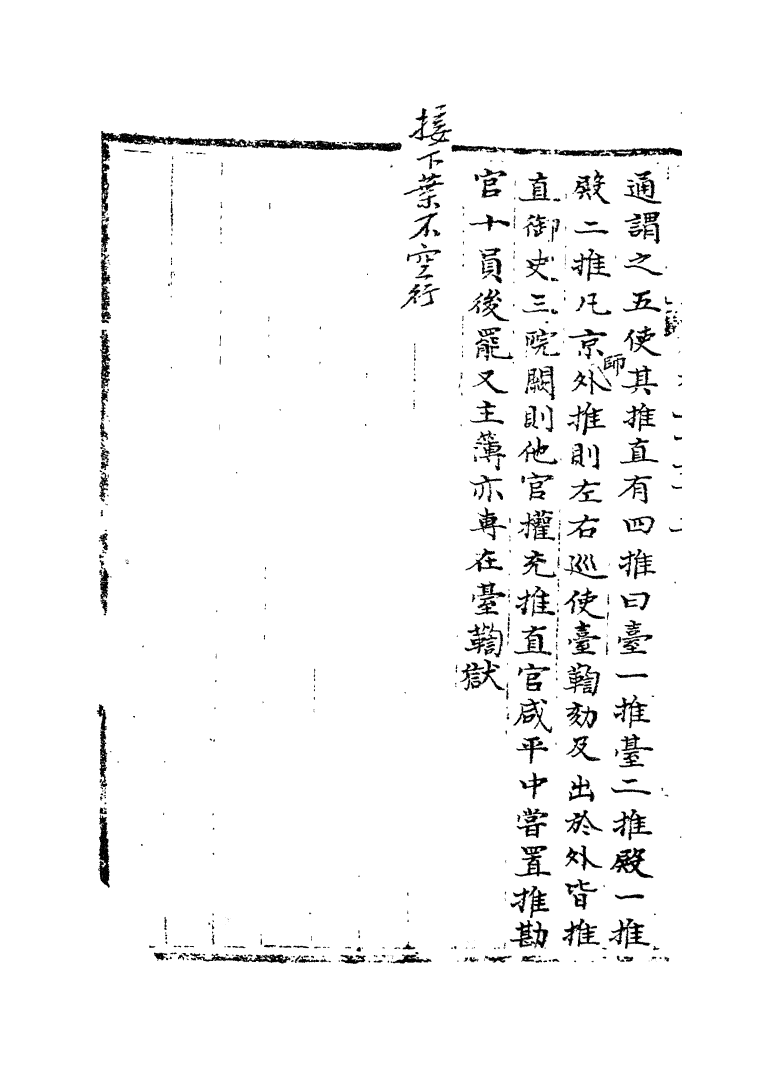 通謂之五使其推直有四推曰臺一推臺二推殿一推
殿二推凡京師外推則左右巡使臺鞫劾及出於外皆推
直御史三院闕則他官權充推直官咸平中嘗置推勘
官十員後罷又主薄亦專在臺鞫獄
接下葉不空行